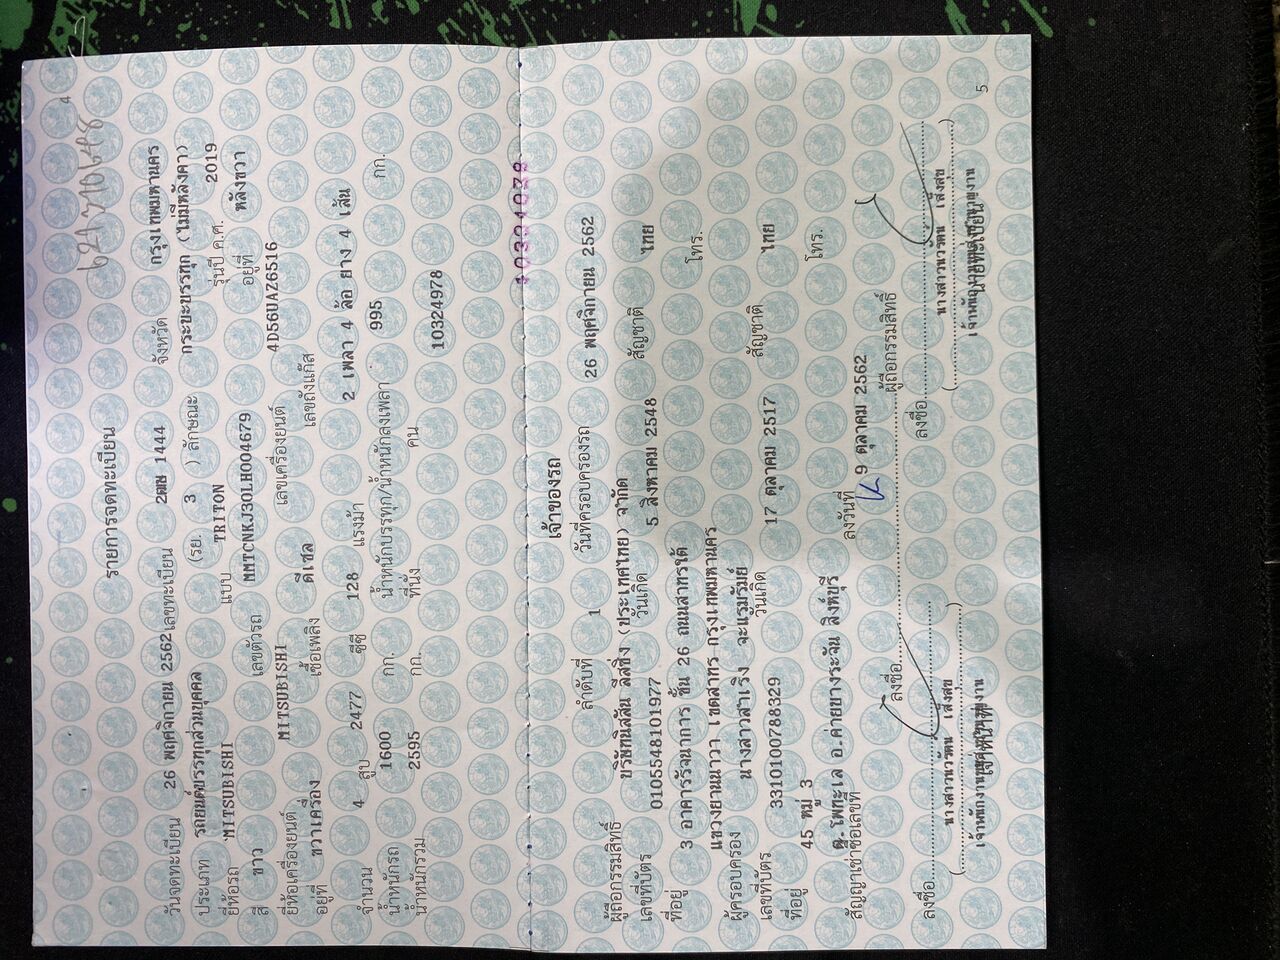 4
รายการจดทะเบียน
วันจดทะเบียน 26 พฤศจิกายน 2562 เลขทะเบียน 2ฒฒ 1444 จังหวัด กรุงเทพมหานคร
ประเภท รถยนต์บรรทุกส่วนบุคคล (รย. 3 ) ลักษณะ กระบะบรรทุก (ไม่มีหลังคา)
ยี่ห้อรถ MITSUBISHI แบบ TRITON รุ่นปี ค.ศ. 2019
สี ขาว เลขตัวรถ อยู่ที่ หลังขวา
ยี่ห้อเครื่องยนต์ MITSUBISHI เลขเครื่องยนต์ 4D56UAZ6516
อยู่ที่ ขวาเครื่อง เชื้อเพลิง ดีเซล เลขถังแก๊ส
จำนวน 4 สูบ 2477 ซีซี 128 แรงม้า 2 เพลา 4 ล้อ ยาง 4 เส้น
น้ำหนักรถ 1600 กก. น้ำหนักบรรทุก/น้ำหนักลงเพลา 995 กก.
น้ำหนักรวม 2595 กก. ที่นั่ง คน
10324978
เจ้าของรถ
ลำดับที่ 1 วันที่ครอบครองรถ 26 พฤศจิกายน 2562
ผู้ถือกรรมสิทธิ์ บริษัทนิสสัน ลีสซิ่ง (ประเทศไทย) จำกัด
เลขที่บัตร 0105548101977 วันเกิด 5 สิงหาคม 2548 สัญชาติ ไทย
ที่อยู่ 3 อาคารรัจนาการ ชั้น 26 ถนนสาทรใต้ โทร.
แขวงยานนาวา เขตสาทร กรุงเทพมหานคร
ผู้ครอบครอง นางสาวสำเริง
เลขที่บัตร 3310100788329 วันเกิด 17 ตุลาคม 2517 สัญชาติ ไทย
ที่อยู่ 45 หมู่ 3 โทร.
ต.โพทะเล อ.ค่ายบางระจัน สิงห์บุรี
สัญญาเช่าซื้อเลขที่ ลงวันที่ 9 ตุลาคม 2562
ลงชื่อ ผู้ถือกรรมสิทธิ์
ลงชื่อ ลงชื่อ
5